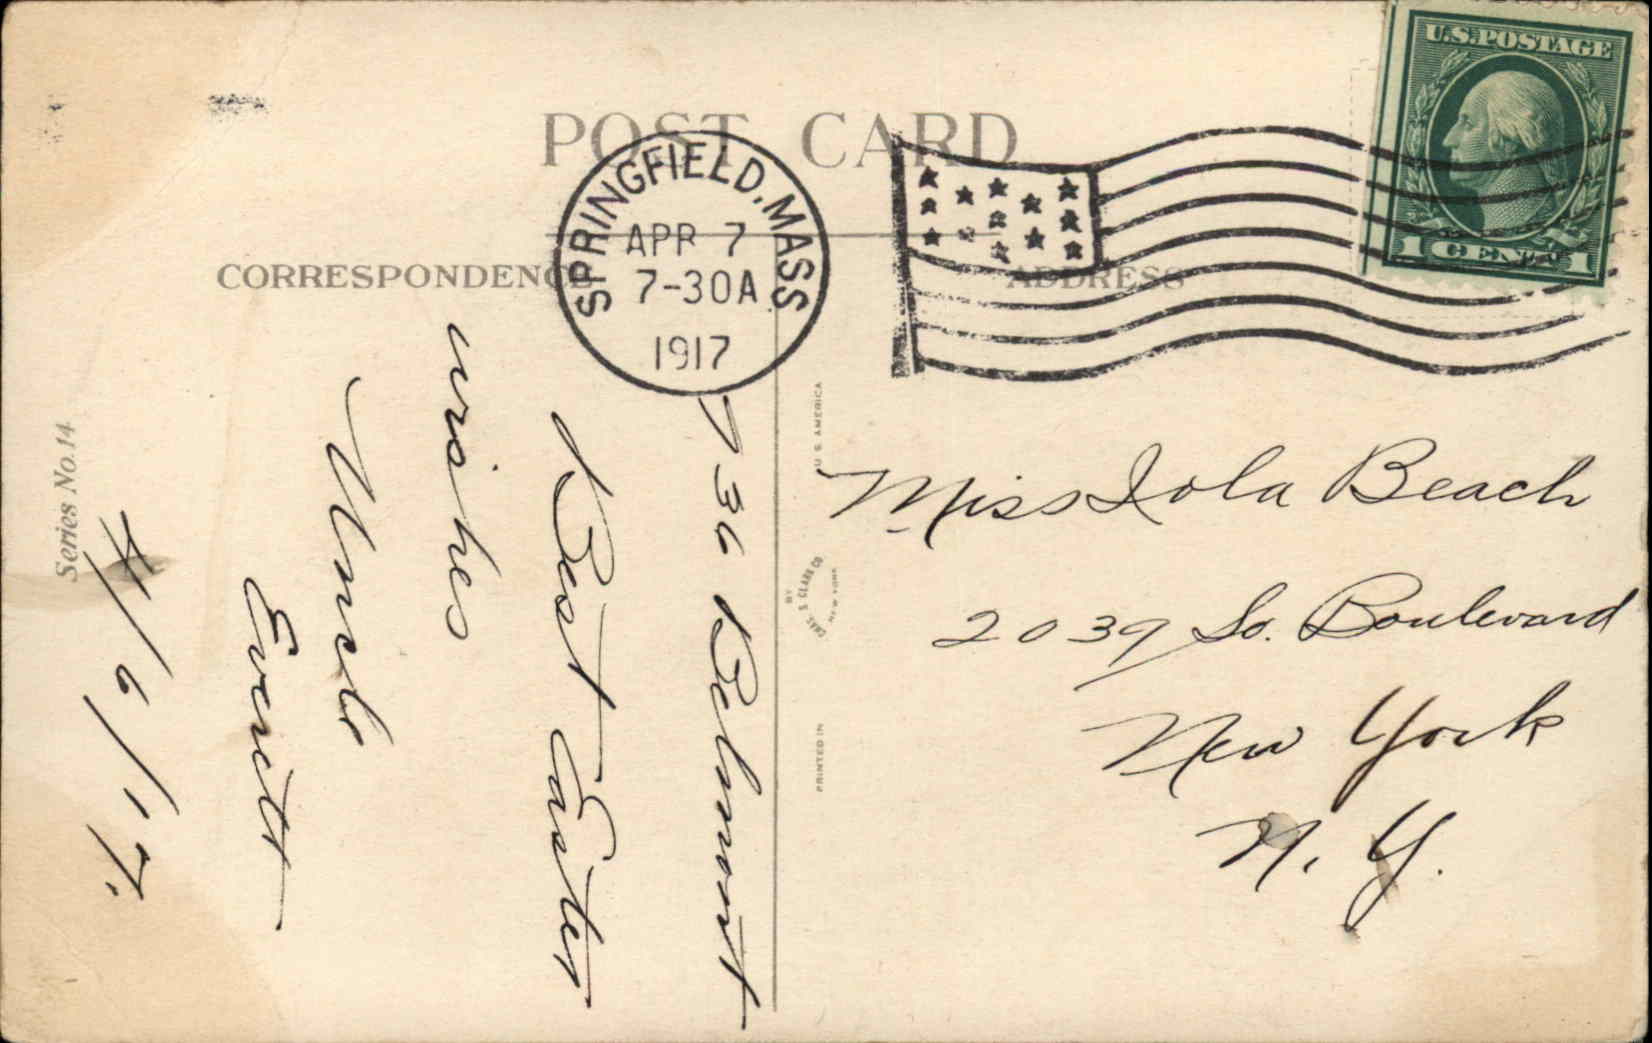 POST CARD
CORRESPONDENCE
ADDRESS
U.S. POSTAGE
1 CENT 1
SPRINGFIELD, MASS
APR 7
7-30A
1917
736 Belmont
Best Easter
wishes
Uncle
Everett
4/6/17.
Series No. 14
PRINTED IN U. S. AMERICA
BY
CHAS. S. CLARK CO.
NEW YORK
Miss Iola Beach
2039 So. Boulevard
New York
N. Y.